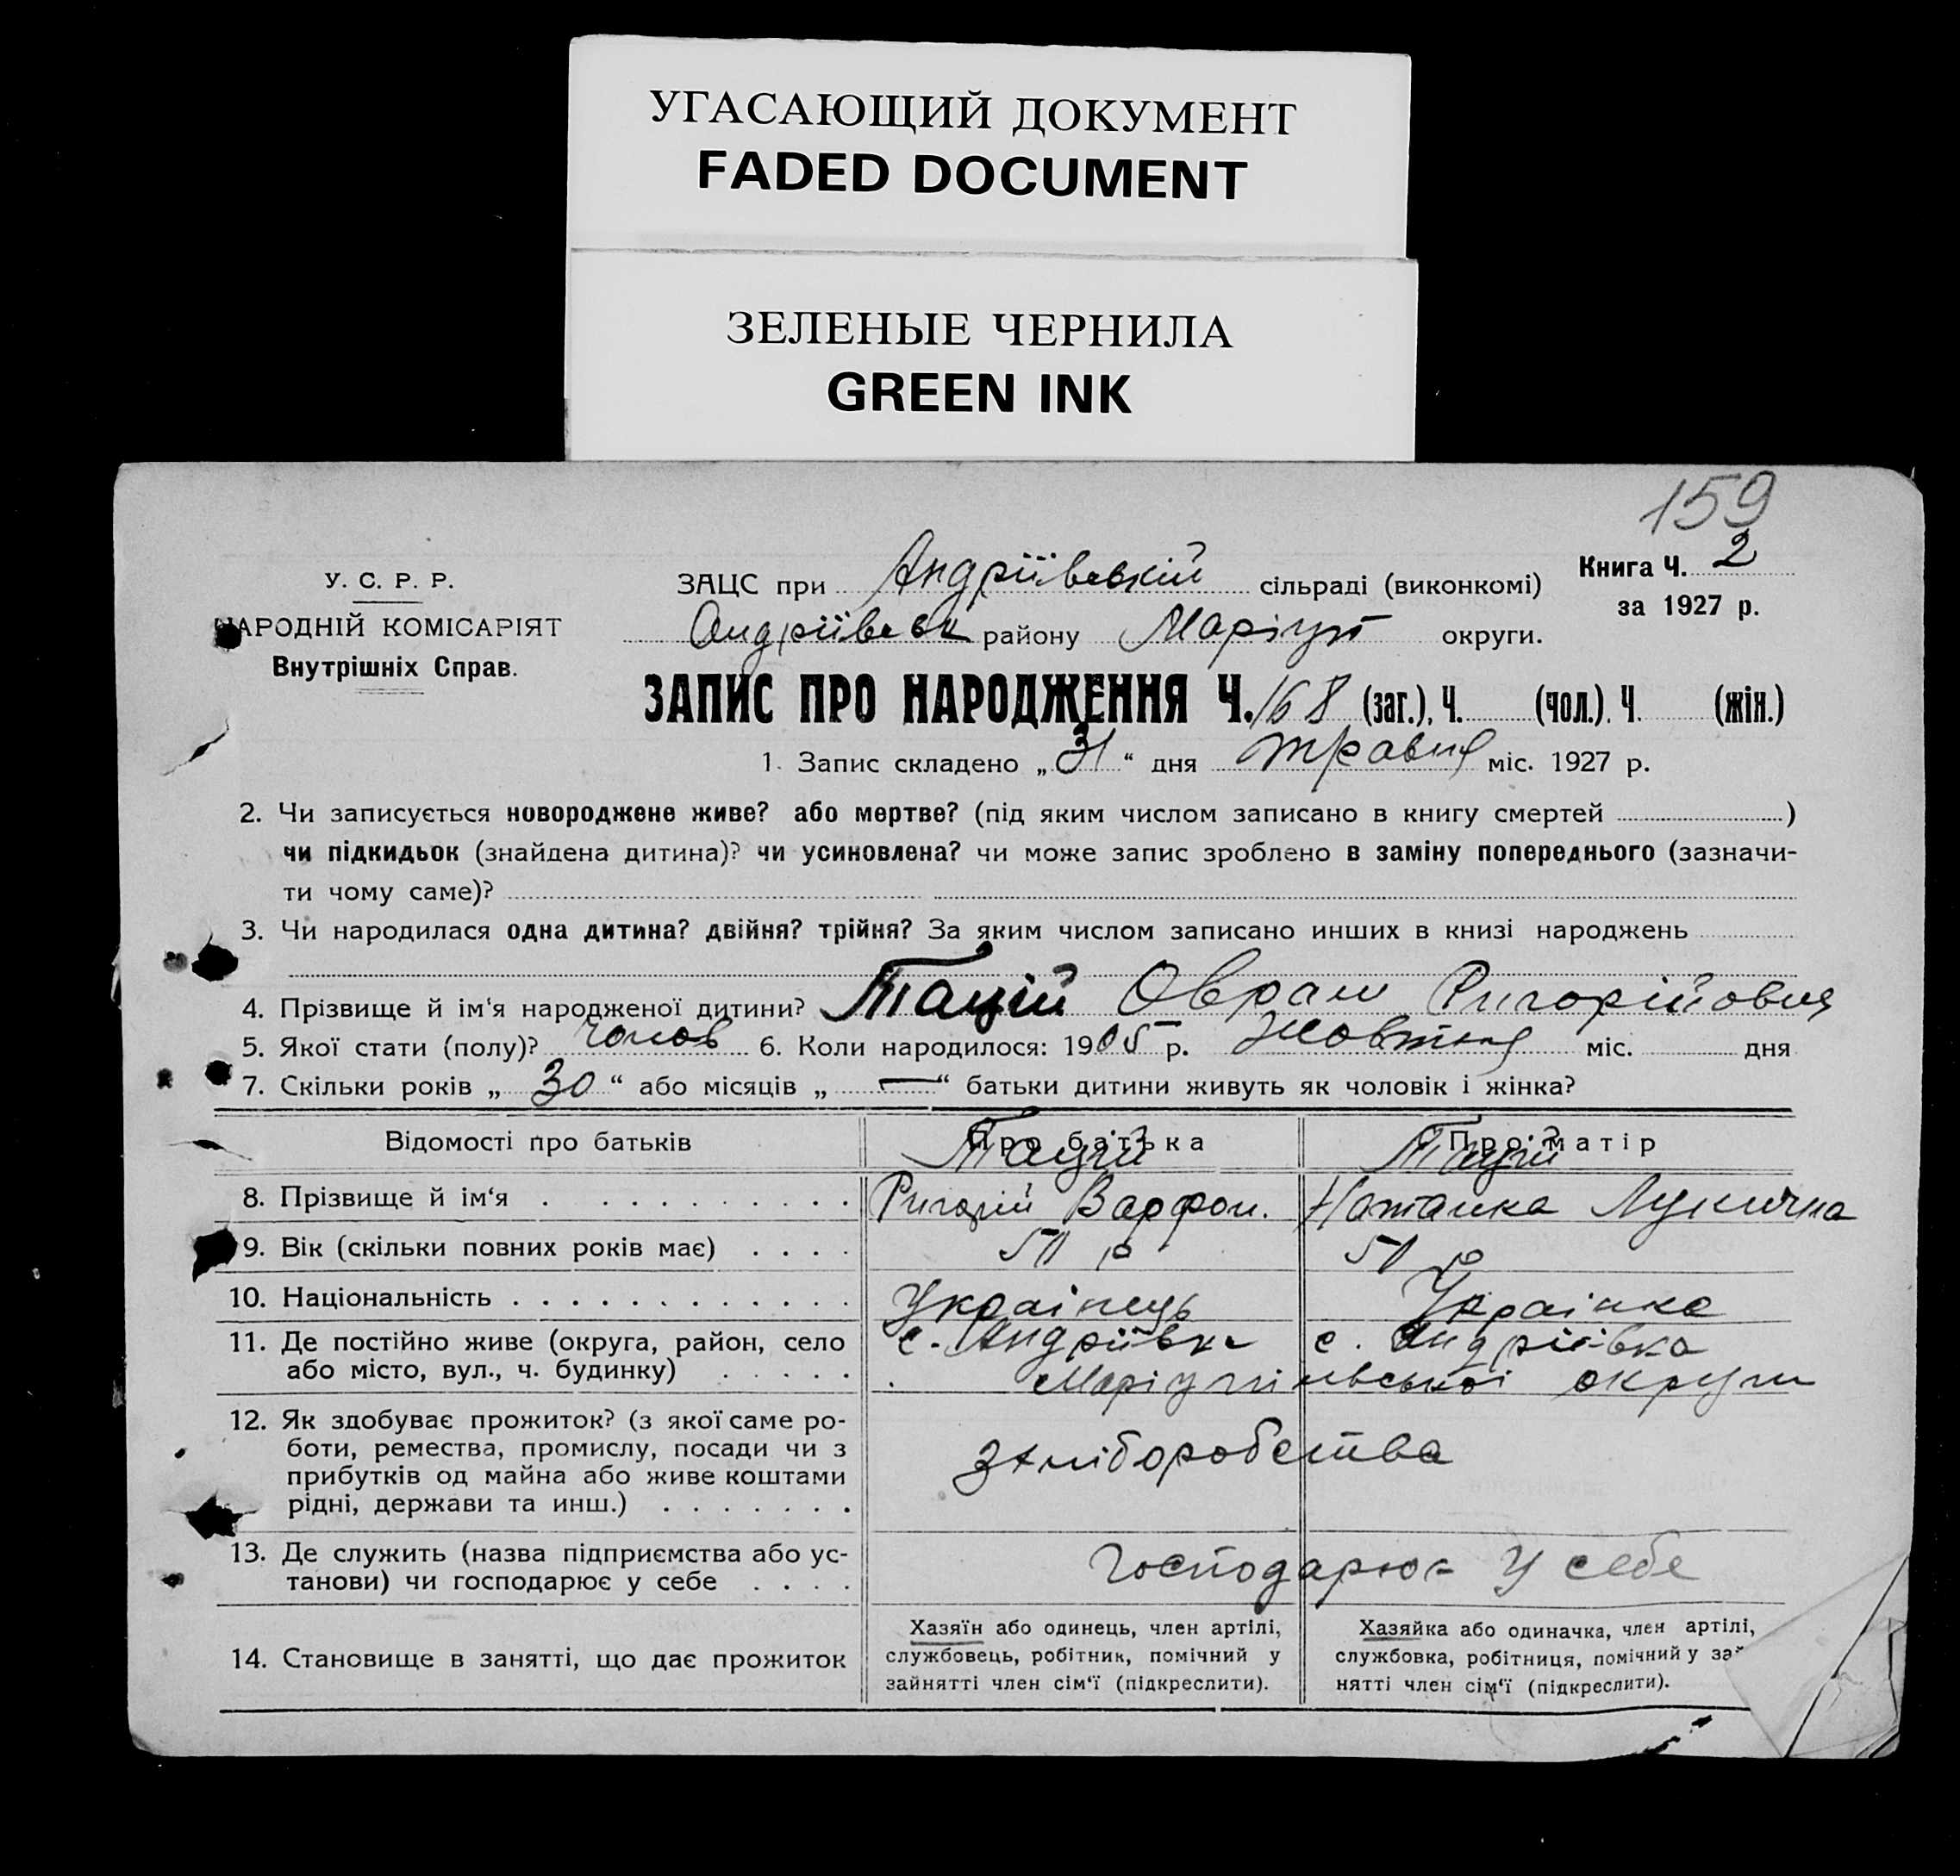 УГАСАЮЩИЙ ДОКУМЕНТ
FADED DOCUMENT
ЗЕЛЕНЫЕ ЧЕРНИЛА
GREEN INK
159
У. С. Р. Р.
НАРОДНІЙ КОМІСАРІЯТ
Внутрішніх Справ.
ЗАЦС при Андріївській сільраді (виконкомі)
Андріївськ району Маріуп округи.
Книга Ч. 2
за 1927 р.
ЗАПИС ПРО НАРОДЖЕННЯ Ч. 168 (заг.), Ч. (чол.), Ч. (жін.)
1. Запис складено „31“ дня травня міс. 1927 р.
2. Чи записується новороджене живе? або мертве? (під яким числом записано в книгу смертей )
чи підкидьок (знайдена дитина)? чи усиновлена? чи може запис зроблено в заміну попереднього (зазначи-
ти чому саме)?
3. Чи народилася одна дитина? двійня? трійня? За яким числом записано инших в книзі народжень
4. Прізвище й ім‘я народженої дитини? Тацій Оврам Ригорійовия
5. Якої стати (полу)? чолов 6. Коли народилося: 1905 р. жовтня міс. дня
7. Скільки років „30“ або місяців „—“ батьки дитини живуть як чоловік і жінка?
Відомості про батьків Про батька Про матір
Тацій Тацій
8. Прізвище й ім‘я Ригорій Варфол. Наталка Лукична
9. Вік (скільки повних років має) р р
10. Національність Українець Українка
11. Де постійно живе (округа, район, село с. Андріївка с. Андріївка
або місто, вул., ч. будинку) Маріупільської округи
12. Як здобуває прожиток? (з якої саме ро-
боти, ремества, промислу, посади чи з
прибутків од майна або живе коштами
рідні, держави та инш.)
з хліборобства
13. Де служить (назва підприємства або ус-
танови) чи господарює у себе
Господарює у себе
14. Становище в занятті, що дає прожиток
Хазяїн або одинець, член артілі,
службовець, робітник, помічний у
зайнятті член сім‘ї (підкреслити).
Хазяйка або одиначка, член артілі,
службовка, робітниця, помічний у зай
нятті член сім‘ї (підкреслити).